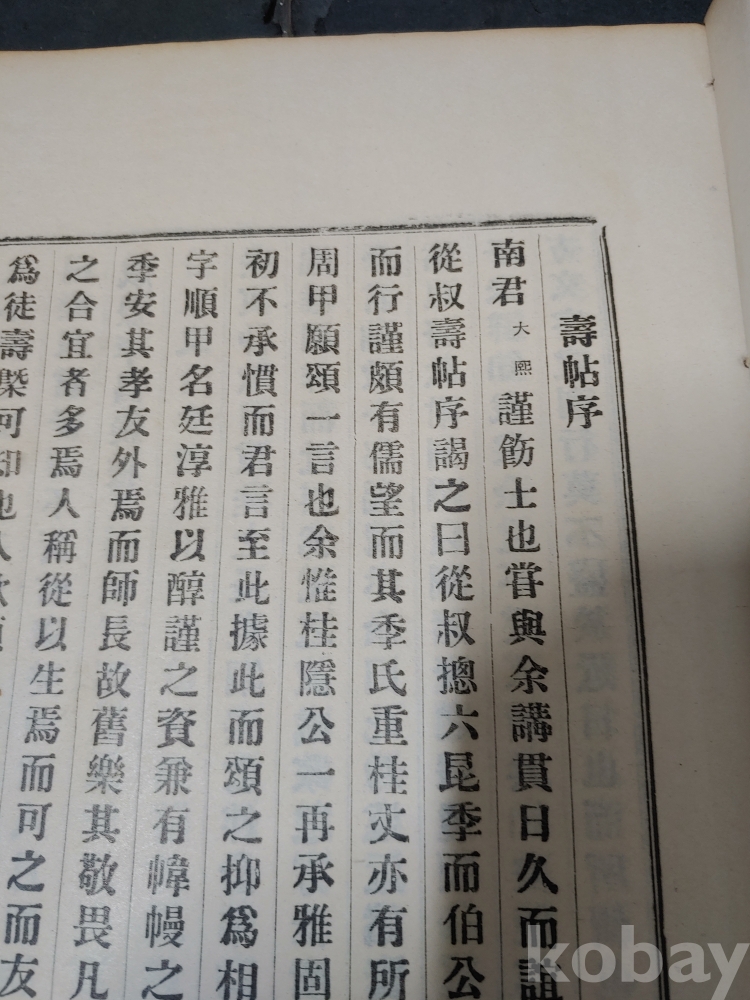 壽帖序
南君大熙謹飭士也嘗與余講貫日久而誼
從叔壽帖序謁之曰從叔摠六昆季而伯公
而行謹頗有儒望而其季氏重桂丈亦有所
周甲願頌一言也余惟桂隱公一再承雅固
初不承慣而君言至此據此而頌之抑爲相
字順甲名廷淳雅以醇謹之資兼有幃幔之
季安其孝友外焉而師長故舊樂其敬畏凡
之合宜者多焉人稱從以生焉而可之而友
爲徒壽槩可卸也人
kobay